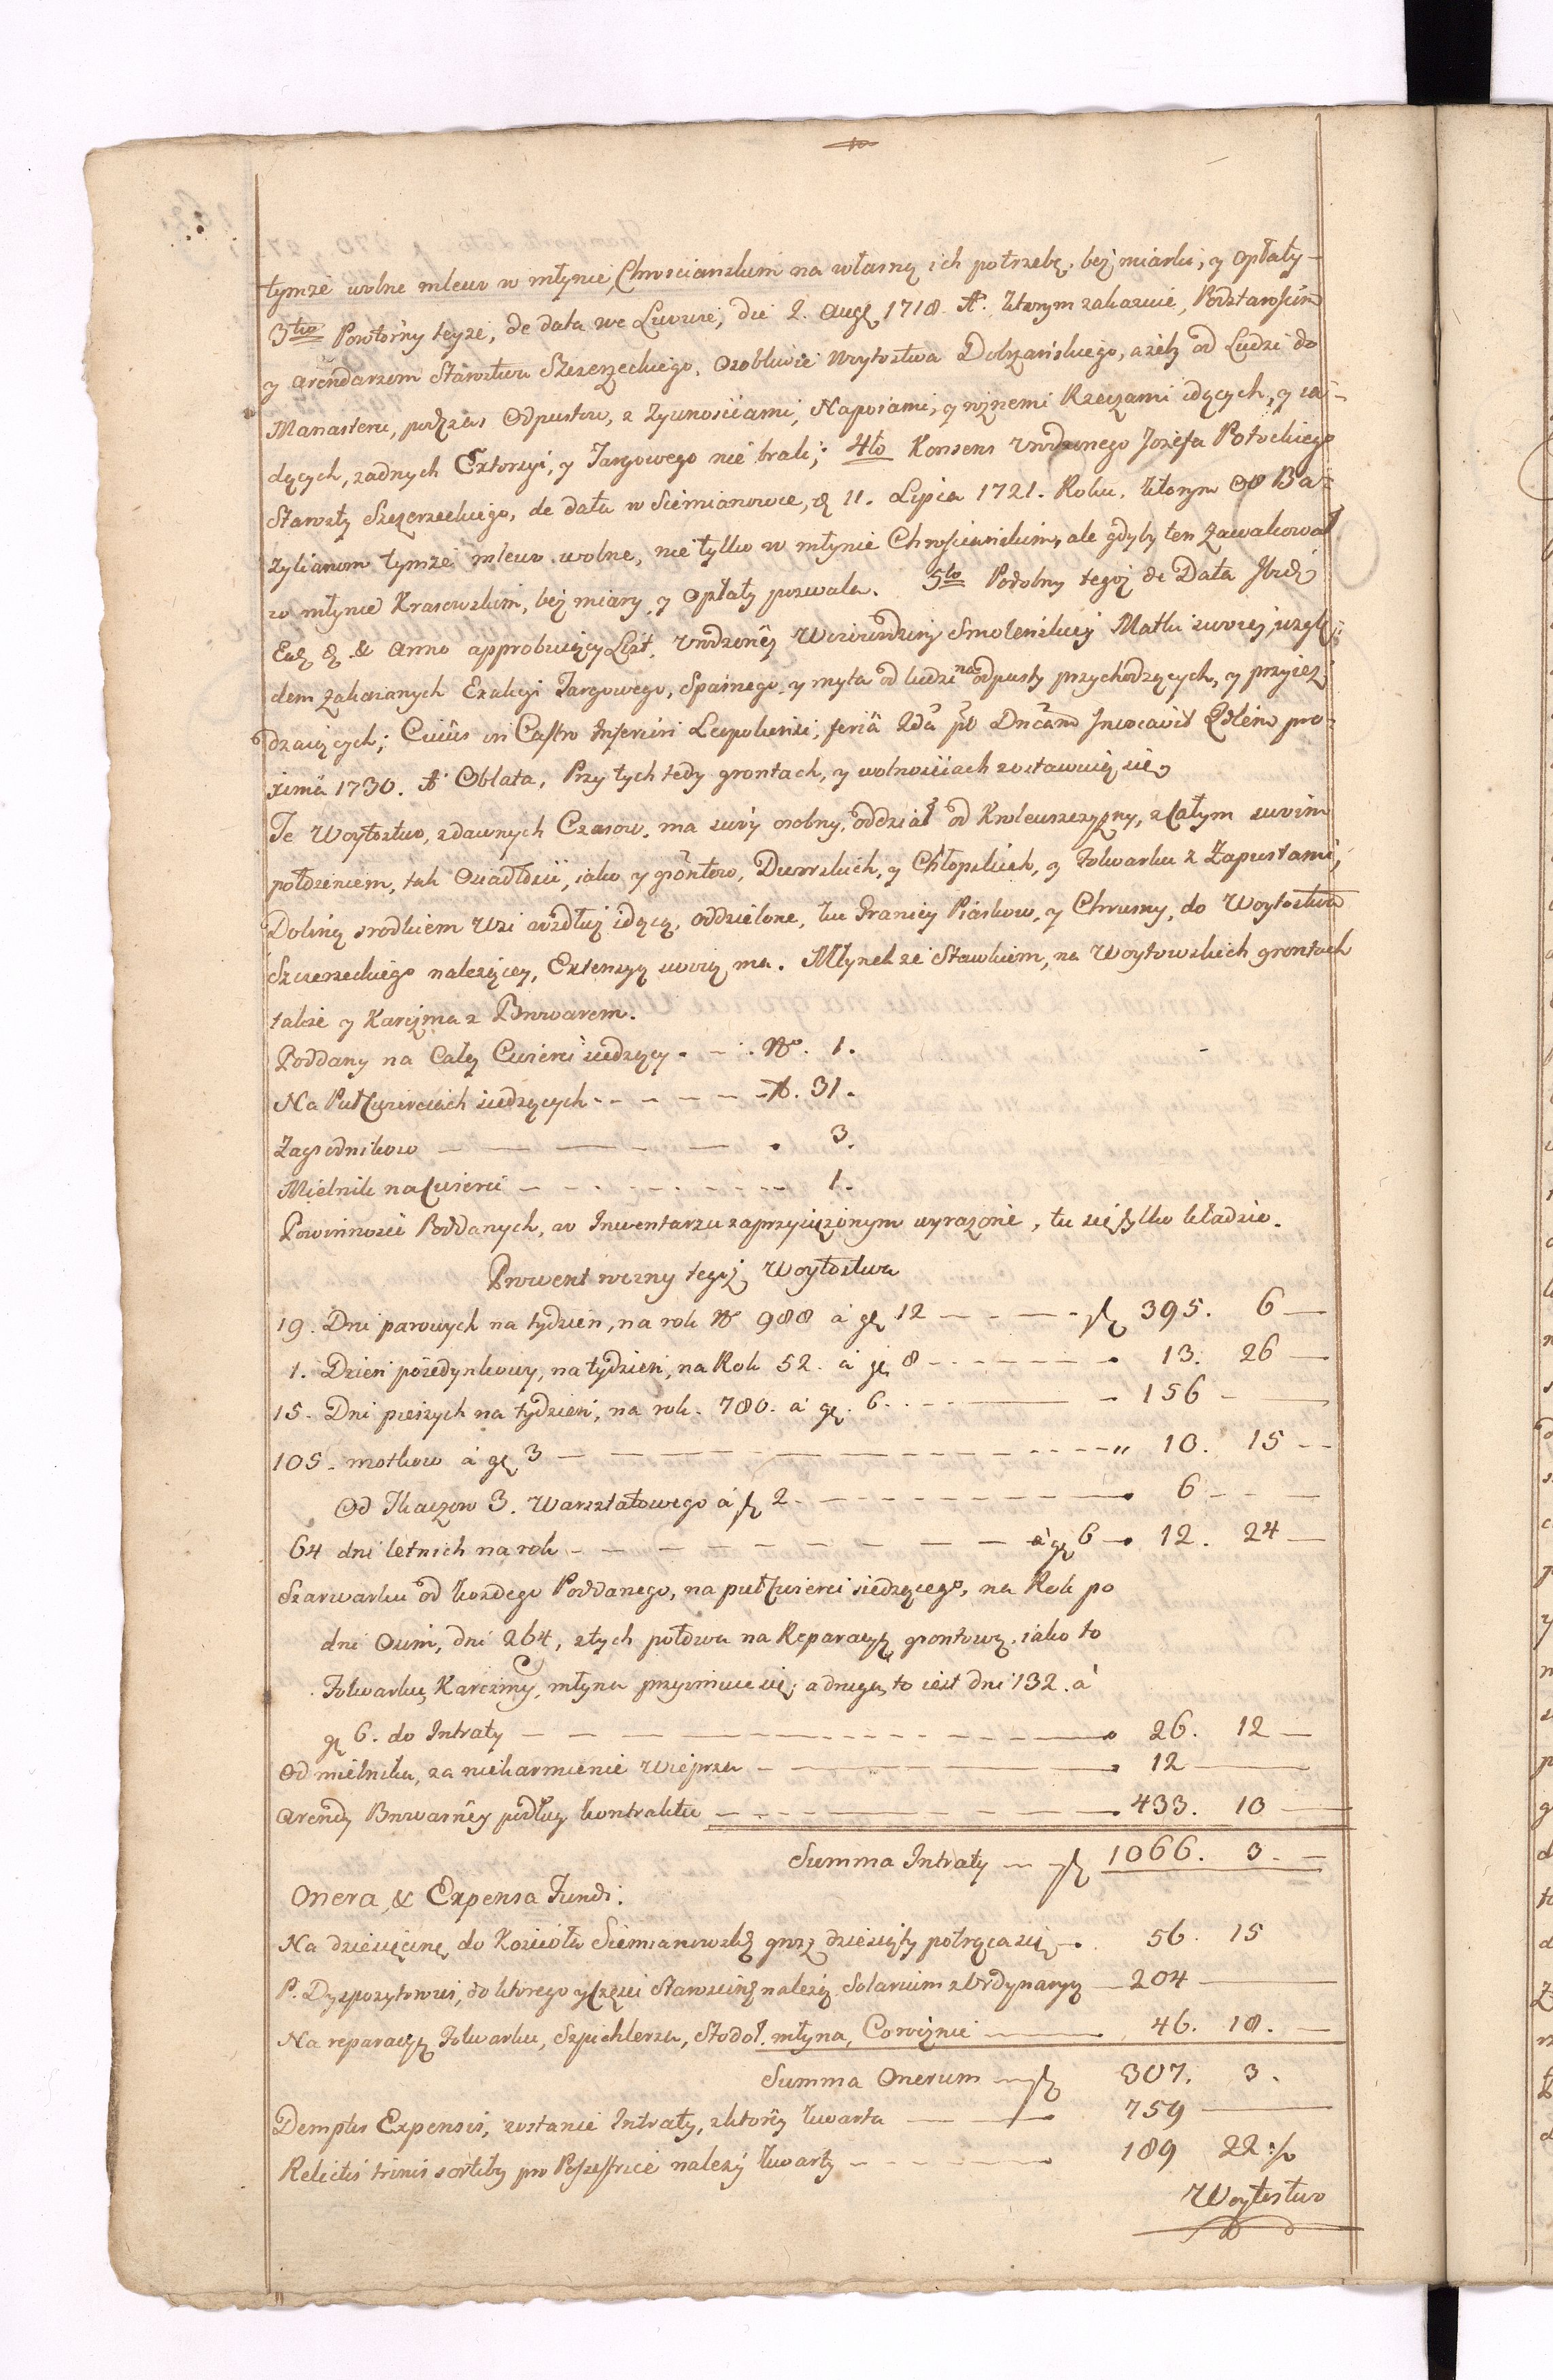 tymże wolne mlewo w młynie Chrościanskim na własną ich potrzebę, bez miarki, y opłaty —
3tio Powtórny teyże, de data we Lwowie, die 2. Augi 1718. A. ktorym zakazuie, Podstarościm
y arendarzom Starostwa Szczerzeckiego, osobliwie Woytostwa Dobrzańskiego, ażeby od Ludzi do
Manasteru, podczas Odpustow, z Zywnosciami, Napoiami, y roznemi Rzeczami idących, y ia-
dących, zadnych Extorsyi, y Targowego nie brali; 4to Konsens Urodzonego Jozefa Potockiego
Starosty Szczerzeckiego, de data w Siemianowce, d. 11. Lipca 1721. Roku, ktorym OO Ba-
zylianom tymże mlewo wolne, nie tylko w młynie Chrościańskim, ale gdyby ten zawakował
w młynie Krasowskim, bez miary y Opłaty pozwala. 5to Podobny tegoż de Data Ibid.
& Anno approbuiący List, Urodzoney Woiewodziny Smoleńskiey Matki swoiey, wzglę-
dem zakazanych Exakcyi Targowego, Spasnego, y myta od ludzi na odpusty przychodzących, y przyież-
dzaiących; Cuius in Castro Inferiori Leopoliensi, feria 2da pt Dncam Invocavit Qdlem pro-
xima 1730. A Oblata, Przy tych tedy grontach, y wolnościach zostawuią się.
Te Woytostwo, zdawnych Czasow, ma swoy osobny, oddział od Krolewszczyzny, z całym swoim
położeniem, tak Osiadłości, iako y grontow, Dworskich, y Chłopskich, y Folwarku z Zapustami,
Doliną srodkiem Wsi wzdłuż idącą, oddzielone, ku Granicy Piaskow, y Chrusny, do Woytostwa
Szczerzeckiego należącey, Extensyą swoią ma. Młynek ze Stawkiem, na Woytowskich grontach
także y Karczma z Browarem.
Poddany na Całey Cwierci siedzący . — . No. 1.
Na Puł Cwierciach siedzących - - - - - - N. 31.
Zagrodnikow — — — — . 3.
Mielnik na Cwierci — - - - - - - 1.
Powinności Poddanych, w Inwentarzu zaprzysiężonym wyrażone, tu się tylko kładzie.
Prowent roczny tegoż Woytostwa
19. Dni parowych na tydzien, na rok No 988 à gr 12 — - — - fl 395. 6 —
1. Dzien poiedynkowy, na tydzien, na Rok 52. à gr 8 - - - - - - 13. 26 —
15. Dni pieszych na tydzien, na rok. 780. à gr. 6. - - — 156 - —
105. motkow à gr 3 — — — - - - - " 10. 15 - -
Od Tkaczow 3. Warsztatowego à fl 2 - - - - - - 6 - - —
64 dni letnich na rok - — — — — — — à gr 6 - 12. 24 —
Szarwarku od kożdego Poddanego, na puł Cwierci siedzącego, na Rok po
dni Osim, dni 264, z tych połowa na Reparacyą grontową, iako to
Folwarku, Karczmy, młyna przyimuie się, a druga, to iest dni 132. à
gr 6. do Intraty — - — - - - - 26. 12 —
Od mielnika, za niekarmienie Wieprza — — — 12 —
Arendy Browarney podług kontraktu — - - — 433. 10 —
Summa Intraty — fl 1066. 3. —
Onera, & Expensa Fundi.
Na dziesięcinę do Kościoła Siemianowskiego grosz dziesiąty potrąca się — 56. 15
P. Dyspozytorowi, do ktorego y części Starościney należą Solarium z Ordynaryą — 204 —
Na reparacyą Folwarku, Szpichlerza, Stodoł, młyna, Corocznie — 46. 18. —
Summa Onerum — fl 307. 3.
Demptis Expensis, zostanie Intraty, z ktorey kwarta — 759 —
Relictis trinis sortibus pro Possessore należy kwarty - - - - 189 22 ½
Woytostwo